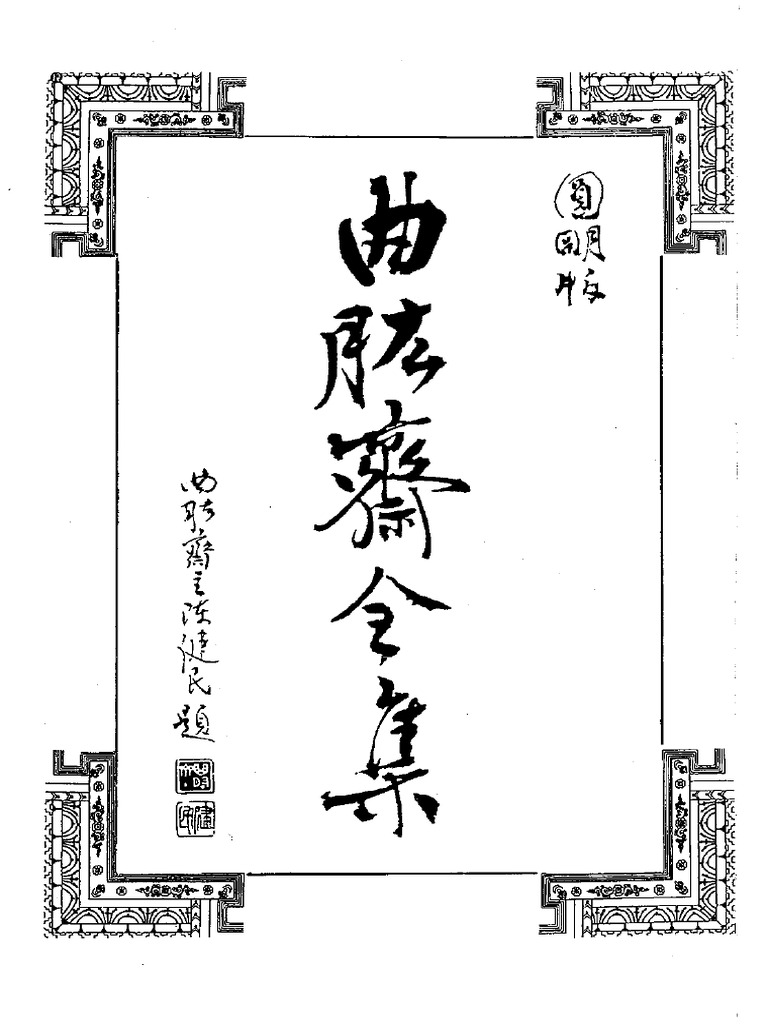 圓明版
曲肱齋全集
曲肱齋主陈健民題